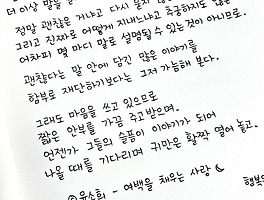 더 이상 말을
정말 괜찮은 거냐고 다시 묻지
그리고 진짜로 어떻게 지내느냐고 추궁하지도 않는
어차피 몇 마디 말로 설명될 수 있는 것이 아니므로.
괜찮다는 말 안에 담긴 많은 이야기를
함부로 재단하기보다는 그저 가늠해 본다.
그래도 마음을 쓰고 있으므로
짧은 안부를 가끔 주고받으며.
언젠가 그들의 슬픔이 이야기가 되어
나올 때를 기다리며 귀만은 활짝 열어 놓고.
유소희 - 여백을 채우는 사랑
행복